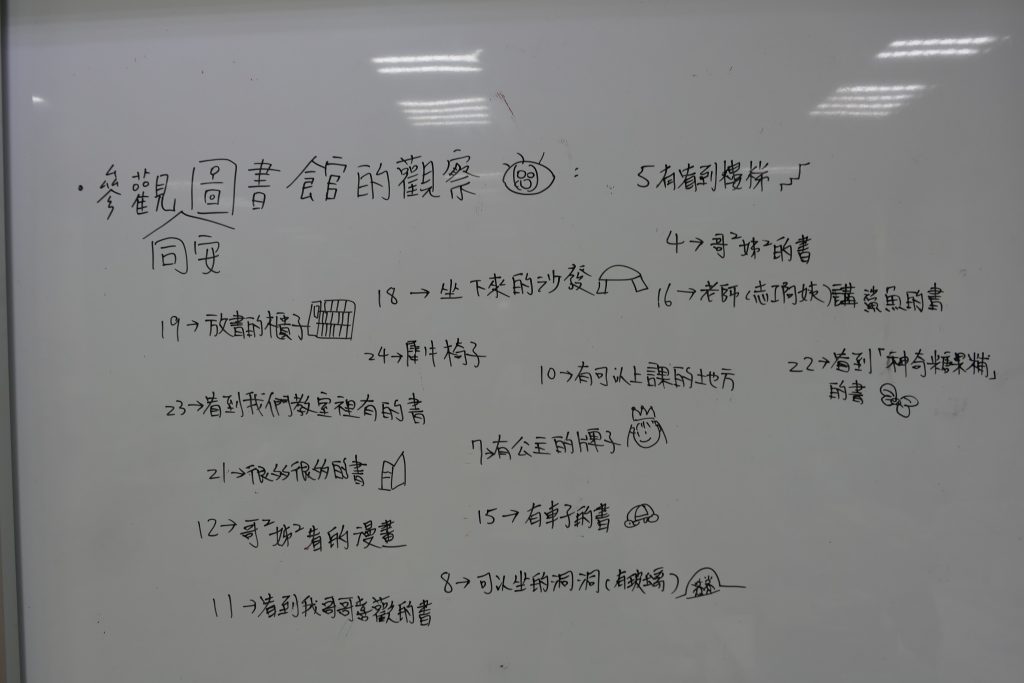 ・參觀圖書館的觀察：
同安
5有看到樓梯
4→哥²姊²的書
18→坐下來的沙發
16→老師(志工阿姨)講鯊魚的書
19→放書的櫃子
24→犀牛椅子
10→有可以上課的地方
22→看到「神奇糖果鋪」
的書
23→看到我們教室裡有的書
7→有公主的牌子
21→很多很多的書
15→有車子的書
12→哥²姊²看的漫畫
8→可以坐的洞洞(有玻璃)
11→看到我哥哥喜歡的書